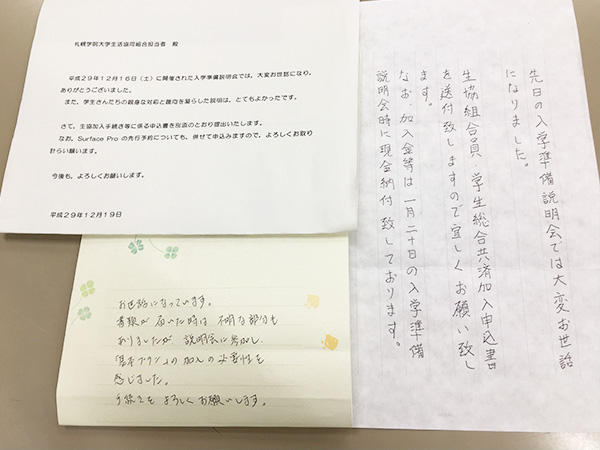 札幌学院大学生活協同組合担当者　殿
平成２９年１２月１６日（土）に開催された入学準備説明会では、大変お世話になり、
ありがとうございました。
また、学生さんたちの親身な対応と趣向を凝らした説明は、とてもよかったです。
さて、生協加入手続き等に係る申込書を別添のとおり提出いたします。
なお、Surface Pro の先行予約についても、併せて申込みますので、よろしくお取り
計らい願います。
今後も、よろしくお願いします。
平成２９年１２月１９日
先日の入学準備説明会では大変お世話
になりました。
生協組合員、学生総合共済加入申込書
を送付致しますので宜しくお願い致し
ます。
なお、加入金等は一月二十日の入学準備
説明会時に現金納付致しております。
お世話になっています。
書類が届いた時は不明な部分も
ありましたが説明会に参加し、
「基本プラン」の加入の必要性を
感じました。
手続きをよろしくお願いします。